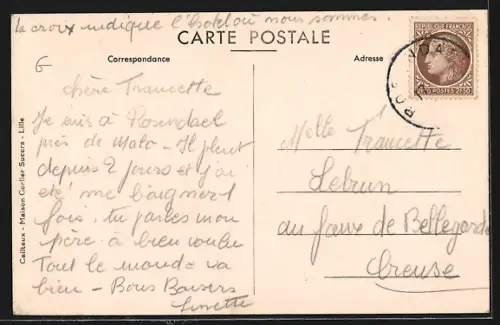 La croix indique l'hotel où nous sommes.
CARTE POSTALE
Correspondance
Adresse
REPUBLIQUE FRANÇAISE
POSTES 2F50
ROSENDAEL
G
Chère Francette
Je suis à Rosendael
près de Malo - Il pleut
depuis 2 jours et j'ai
été me baigner 1
fois, tu parles mon
père a bien voulu
Tout le monde va
bien - Bons Baisers
Ginette
Melle Francette
Lebrun
au faux de Bellegarde
Creuse
Cailteux - Maison Carlier Succrs - Lille